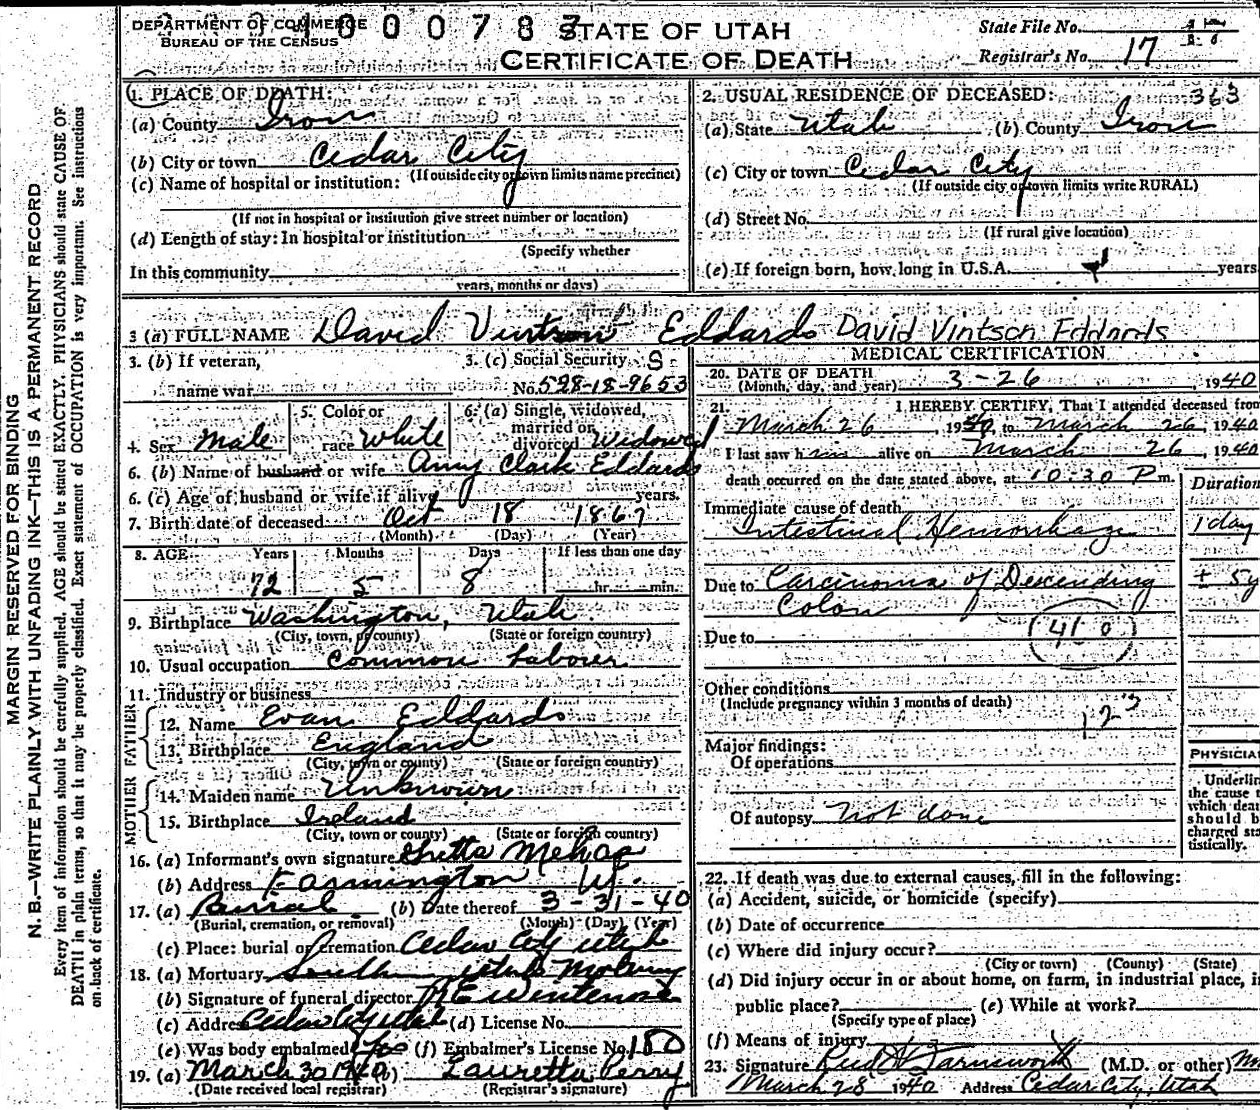 DEPARTMENT OF COMMERCE
BUREAU OF THE CENSUS
STATE OF UTAH
CERTIFICATE OF DEATH
State File No.
Registrar's No. 17
363
1. PLACE OF DEATH:
(a) County Iron
(b) City or town Cedar City
(If outside city or town limits name precinct)
(c) Name of hospital or institution:
(If not in hospital or institution give street number or location)
(d) Length of stay: In hospital or institution
(Specify whether
In this community
years, months or days)
2. USUAL RESIDENCE OF DECEASED:
(a) State Utah (b) County Iron
(c) City or town Cedar City
(If outside city or town limits write RURAL)
(d) Street No.
(If rural give location)
(e) If foreign born, how long in U.S.A. years
3 (a) FULL NAME David Vintson Eddards David Vintson Eddards
3. (b) If veteran, name war
3. (c) Social Security S-
No. 528-18-9653
4. Sex Male
5. Color or race White
6. (a) Single, widowed, married or divorced Widowed
6. (b) Name of husband or wife Amy Clark Eddards
6. (c) Age of husband or wife if alive years.
7. Birth date of deceased Oct 18 1867
(Month) (Day) (Year)
8. AGE Years Months Days If less than one day
72 5 8 hr. min.
9. Birthplace Washington, Utah
(City, town, or county) (State or foreign country)
10. Usual occupation Common Laborer
11. Industry or business
FATHER
12. Name Evan Eddards
13. Birthplace England
(City, town or county) (State or foreign country)
MOTHER
14. Maiden name Unknown
15. Birthplace Ireland
(City, town or county) (State or foreign country)
16. (a) Informant's own signature
(b) Address Farmington Ut.
17. (a) Burial (b) Date thereof 3-31-40
(Burial, cremation, or removal) (Month) (Day) (Year)
(c) Place: burial or cremation Cedar City Utah
18. (a) Mortuary South Utah Mortuary
(b) Signature of funeral director
(c) Address Cedar City Utah (d) License No.
(e) Was body embalmed Yes (f) Embalmer's License No. 180
19. (a) March 30 1940 (b) Lauretta Perry
(Date received local registrar) (Registrar's signature)
MEDICAL CERTIFICATION
20. DATE OF DEATH
(Month, day, and year) 3-26, 1940
21. I HEREBY CERTIFY, That I attended deceased from
March 26, 1940, to March 26, 1940
I last saw him alive on March 26, 1940
death occurred on the date stated above, at 10:30 P m.
Duration
Immediate cause of death
Intestinal Hemorrhage 1 day
Due to Carcinoma of Descending ± 5y
Colon
Due to
Other conditions
(Include pregnancy within 3 months of death)
Major findings:
Of operations
Of autopsy not done
PHYSICIA
Underlin
the cause t
which deat
should b
charged sta
tistically.
22. If death was due to external causes, fill in the following:
(a) Accident, suicide, or homicide (specify)
(b) Date of occurrence
(c) Where did injury occur?
(City or town) (County) (State)
(d) Did injury occur in or about home, on farm, in industrial place, i
public place? (e) While at work?
(Specify type of place)
(f) Means of injury
23. Signature Farnsworth (M.D. or other) M
March 28 1940 Address Cedar City, Utah
MARGIN RESERVED FOR BINDING
N. B.—WRITE PLAINLY WITH UNFADING INK—THIS IS A PERMANENT RECORD
Every item of information should be carefully supplied. AGE should be stated EXACTLY. PHYSICIANS should state CAUSE OF
DEATH in plain terms, so that it may be properly classified. Exact statement of OCCUPATION is very important. See instructions
on back of certificate.